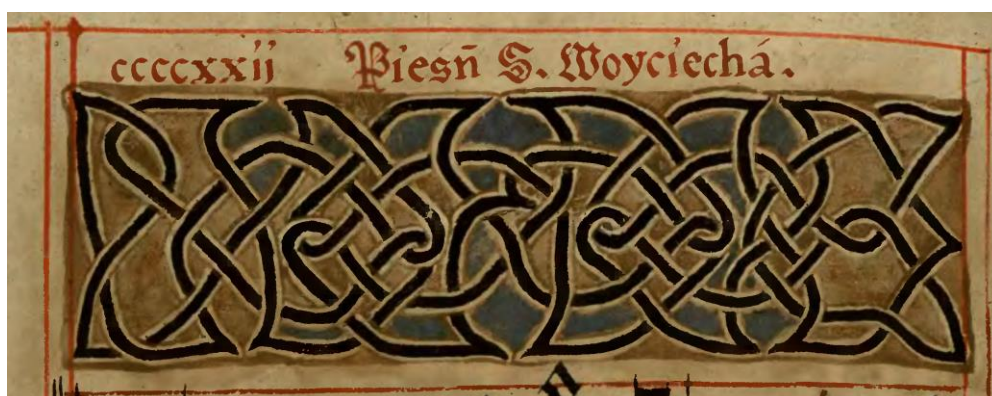 ccccxxii Piesn̄ S. Woyciechá.